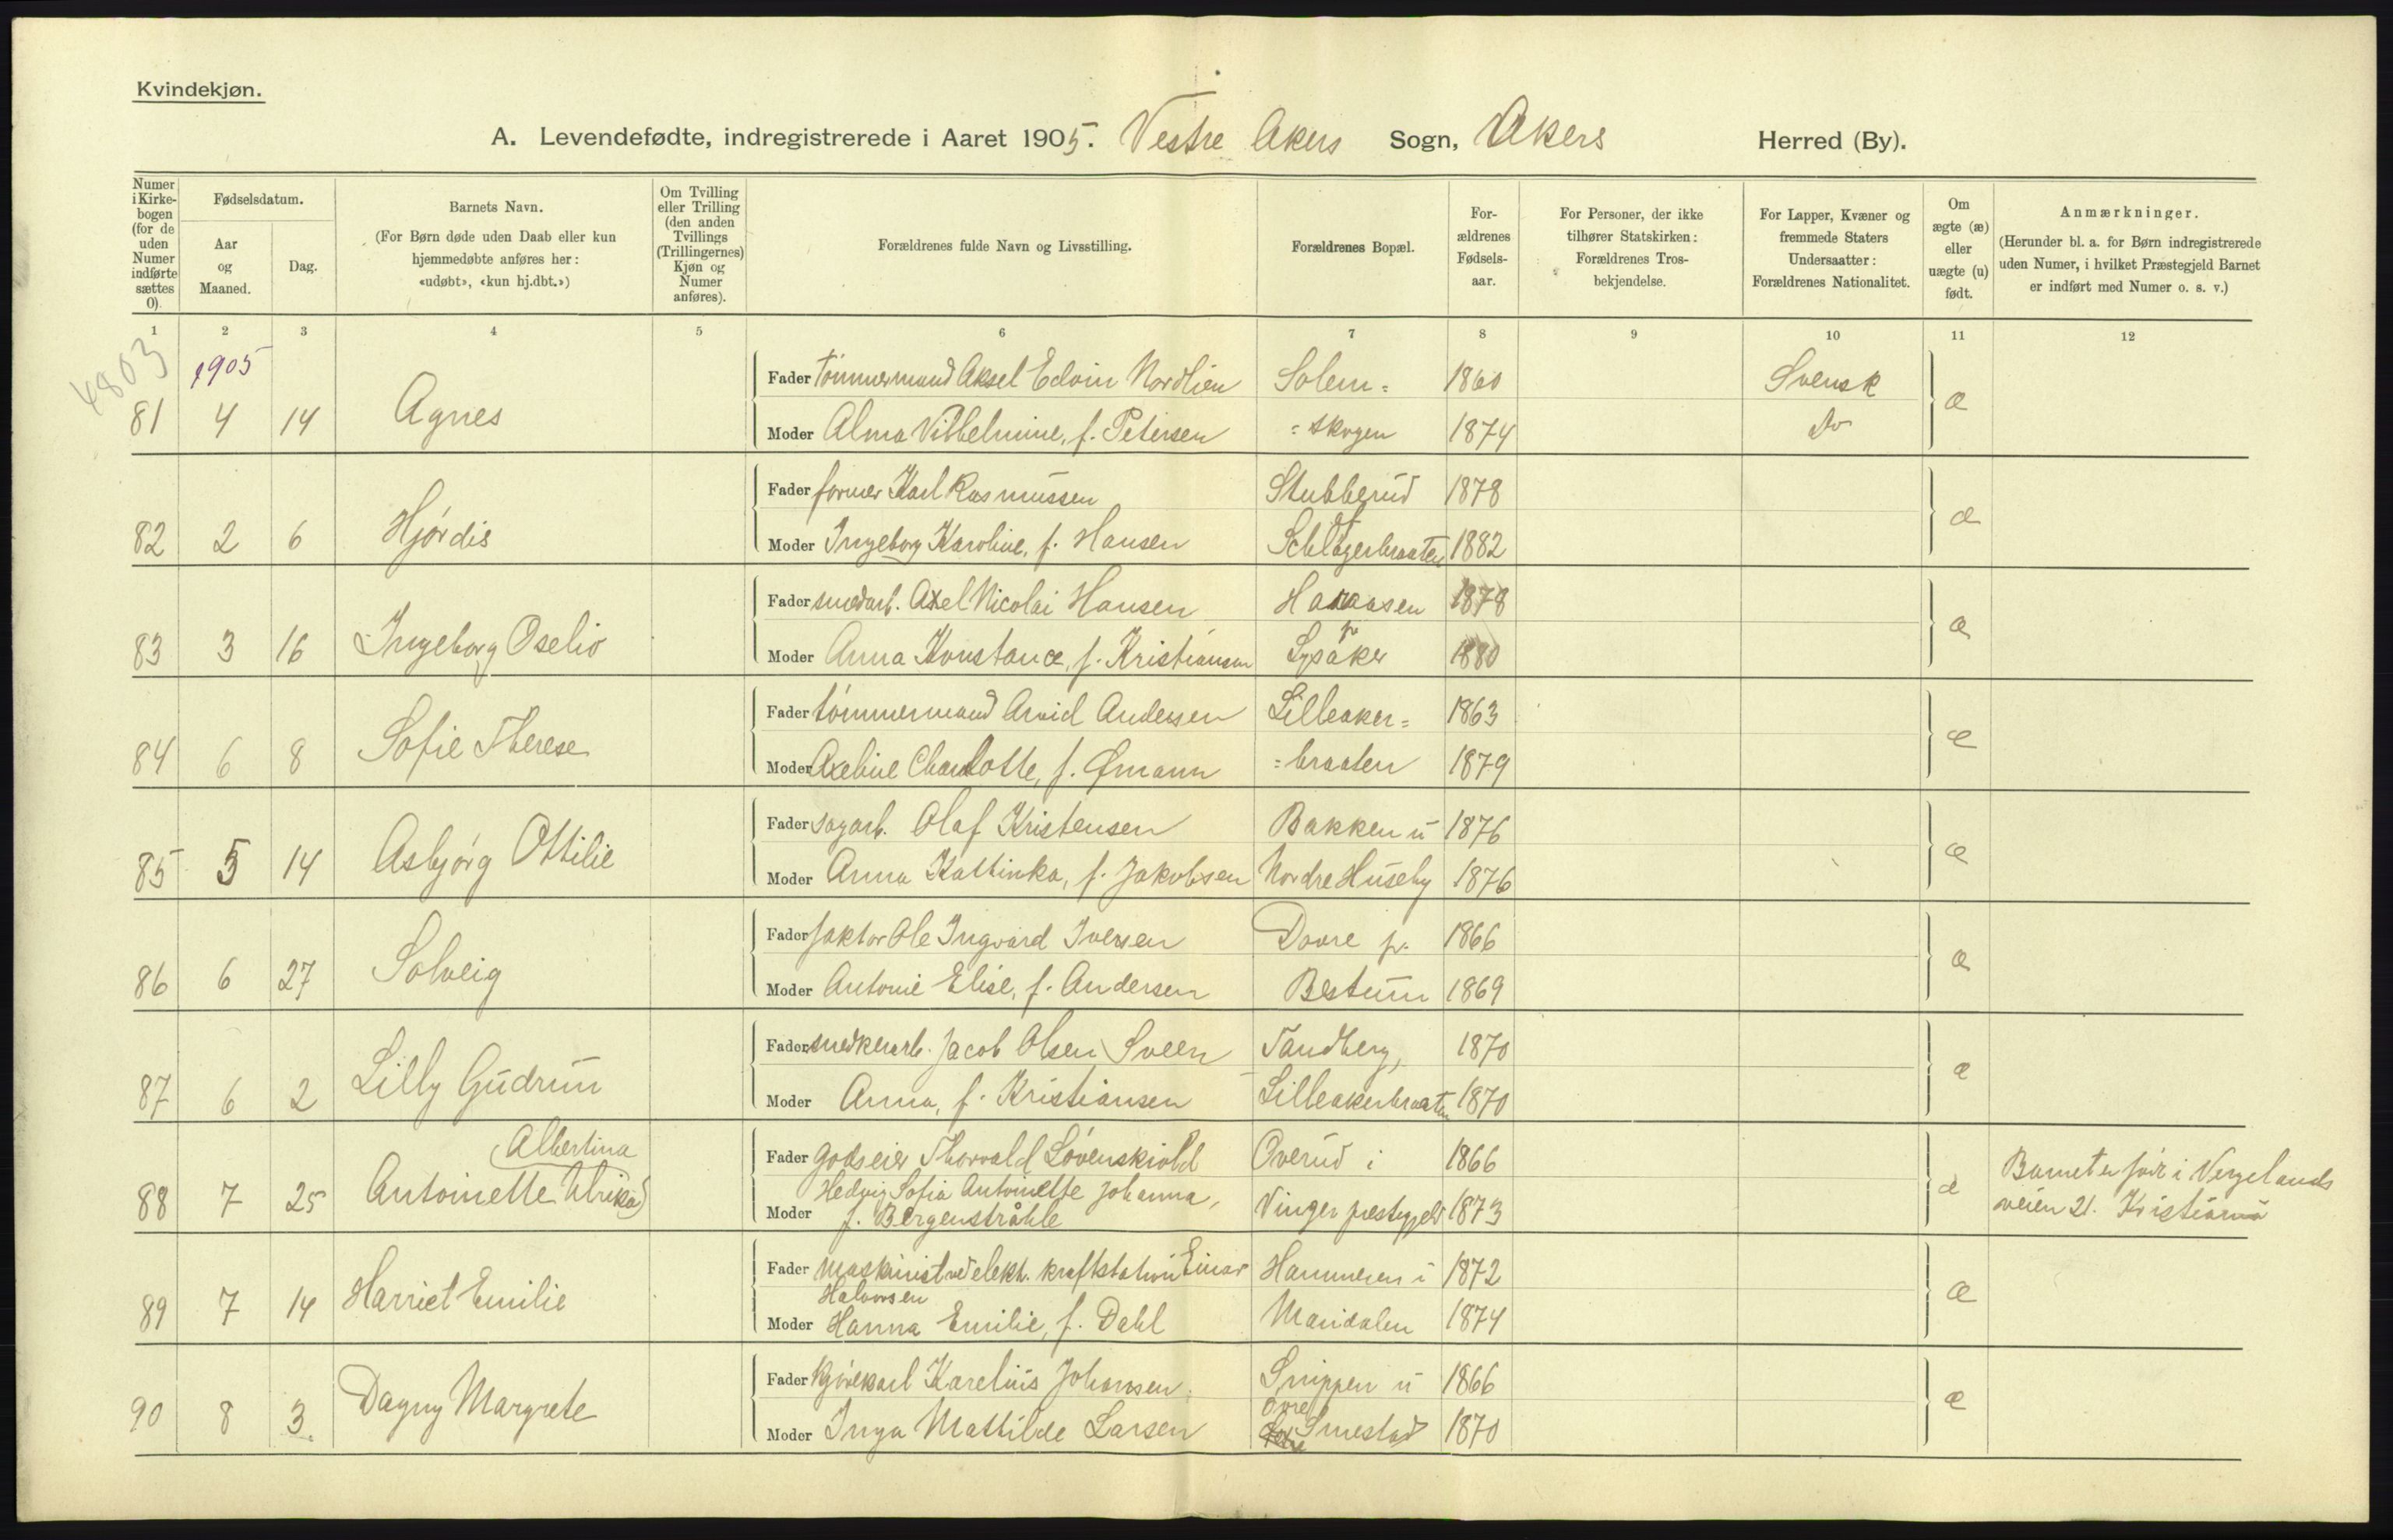 Kvindekjøn.
A. Levendefødte, indregistrerede i Aaret 1905. Vestre Akers Sogn, Akers Herred (By).
Numer i Kirkebogen (for de uden Numer indførte sættes 0).
Fødselsdatum.
Aar og Maaned.
Dag.
Barnets Navn.
(For Børn døde uden Daab eller kun hjemmedøbte anføres her: «udøbt», «kun hj.dbt.»)
Om Tvilling eller Trilling (den anden Tvillings (Trillingernes) Kjøn og Numer anføres).
Forældrenes fulde Navn og Livsstilling.
Forældrenes Bopæl.
Forældrenes Fødselsaar.
For Personer, der ikke tilhører Statskirken: Forældrenes Trosbekjendelse.
For Lapper, Kvæner og fremmede Staters Undersaatter: Forældrenes Nationalitet.
Om ægte (æ) eller uægte (u) født.
Anmærkninger.
(Herunder bl. a. for Børn indregistrerede uden Numer, i hvilket Præstegjeld Barnet er indført med Numer o. s. v.)
1 2 3 4 5 6 7 8 9 10 11 12
4803
1905
Fader Tømmermand Aksel Edvin Nordlien Solem= 1860 Svensk
81 4 14 Agnes Moder Alma Vilhelmine, f. Petersen =skogen 1874 Do æ
Fader former Karl Rasmussen Stubberud 1878
82 2 6 Hjørdis Moder Ingeborg Karoline, f. Hansen Schlagerbraaten 1882 æ
Fader smedarb. Axel Nicolai Hansen Haraasen 1878
83 3 16 Ingeborg Oselio Moder Anna Konstance, f. Kristiansen pr Lysaker 1880 æ
Fader tømmermand Arvid Andersen Lilleaker= 1863
84 6 8 Sofie Therese Moder Axeline Charlotte, f. Ømann =braaten 1879 æ
Fader sagarb. Olaf Kristensen Bakken u 1876
85 5 14 Asbjørg Ottilie Moder Anna Kattinka, f. Jakobsen Nordre Huseby 1876 æ
Fader faktor Ole Ingvard Iversen Dovre p. 1866
86 6 27 Solveig Moder Antonie Elise, f. Andersen Bestum 1869 æ
Fader snedkerarb. Jacob Olsen Sveen Tandberg, 1870
87 6 2 Lilly Gudrun Moder Anna, f. Kristiansen Lilleakerbraaten 1870 æ
Fader Godseier Thorvald Løvenskiold Overud i 1866
88 7 25 Antoinette (Albertina Ulrika) Moder Hedvig Sofia Antoinette Johanna, f. Bergenstråhle Vinger prestegjeld 1873 æ Barnet er født i Vergelands
veien 21. Kristiania
Fader Maskinist ved elekt. kraftstation Einar Halvorsen Hammeren i 1872
89 7 14 Harriet Emilie Moder Hanna Emilie, f. Dahl Maridalen 1874 æ
Fader Kjørekarl Karelius Johansen Snippen u 1866
90 8 3. Dagny Margrete Moder Inga Mathilde Larsen Øvre Smestad 1870 æ